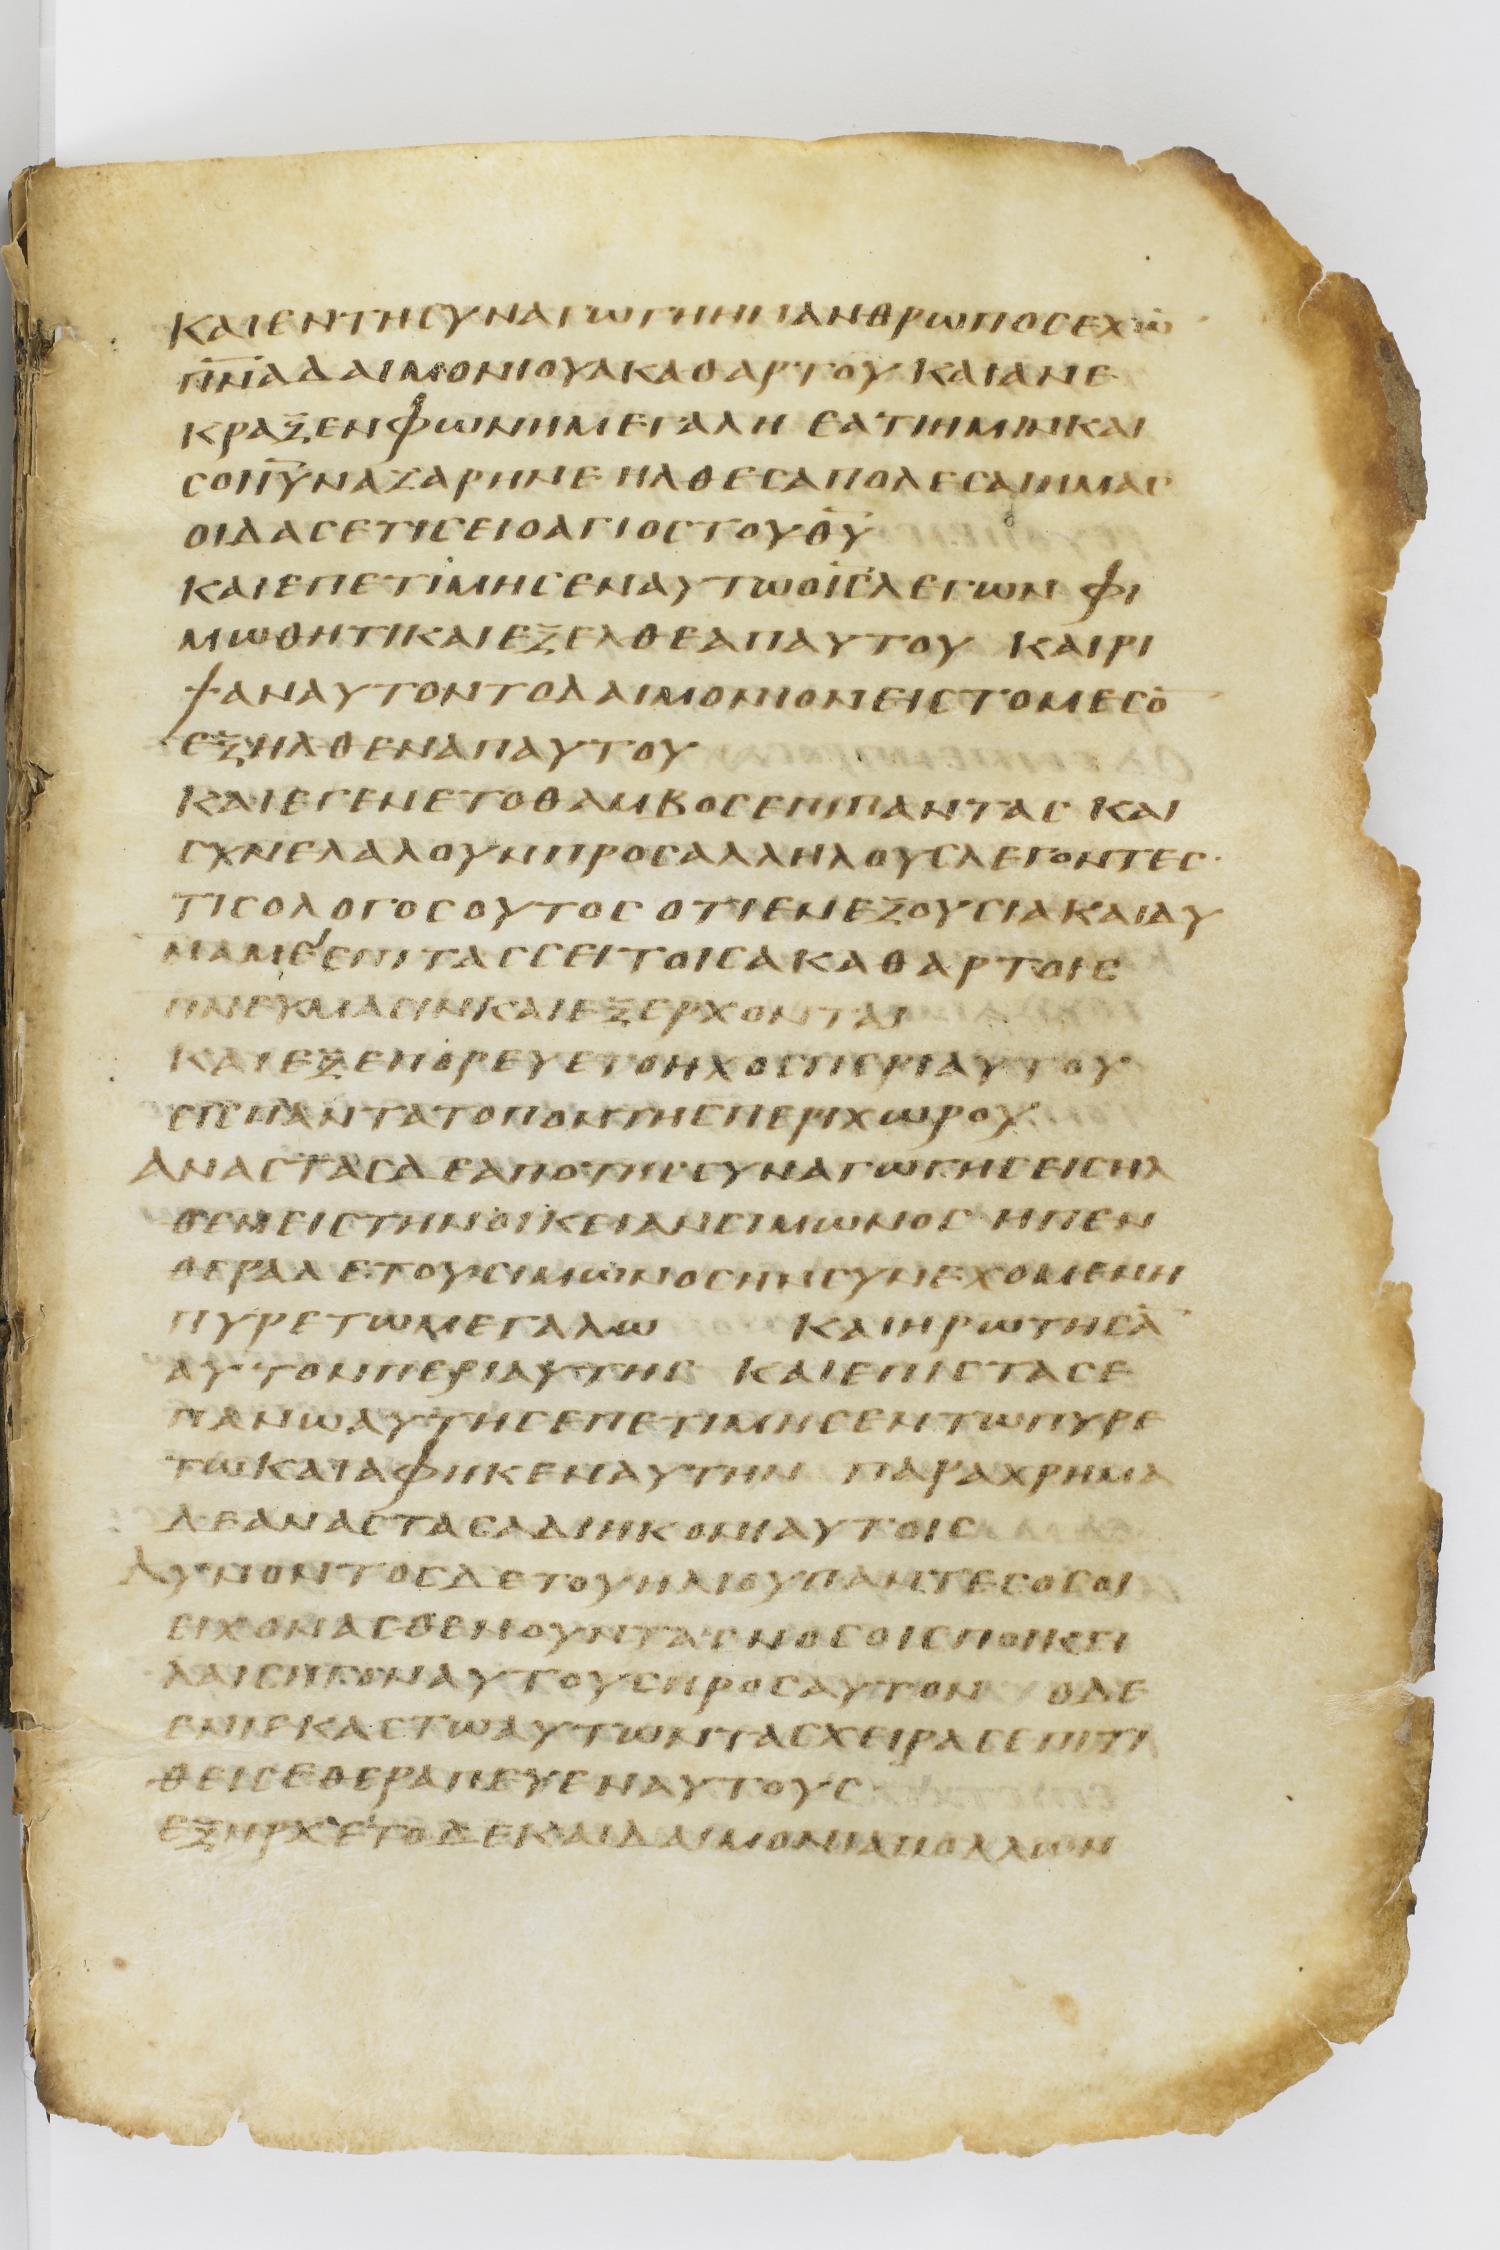 ΚΑΙΕΝΤΗΣΥΝΑΓΩΓΗΗΝΑΝΘΡΩΠΟΣΕΧΩ̅
Π̅Ν̅Α̅ΔΑΙΜΟΝΙΟΥΑΚΑΘΑΡΤΟΥ ΚΑΙΑΝΕ
ΚΡΑΞΕΝΦΩΝΗΜΕΓΑΛΗ ΕΑΤΙΗΜΙΝΚΑΙ
ΣΟΙΙ̅Υ̅ΝΑΖΑΡΗΝΕ ΗΛΘΕΣΑΠΟΛΕΣΑΙΗΜΑΣ
ΟΙΔΑΣΕΤΙΣΕΙΟΑΓΙΟΣΤΟΥΘ̅Υ̅
ΚΑΙΕΠΕΤΙΜΗΣΕΝΑΥΤΩΟΙ̅Σ̅ΛΕΓΩΝ ΦΙ
ΜΩΘΗΤΙΚΑΙΕΞΕΛΘΕΑΠΑΥΤΟΥ ΚΑΙΡΙ
ΨΑΝΑΥΤΟΝΤΟΔΑΙΜΟΝΙΟΝΕΙΣΤΟΜΕΣΟ̅
ΕΞΗΛΘΕΝΑΠΑΥΤΟΥ
ΚΑΙΕΓΕΝΕΤΟΘΑΜΒΟΣΕΠΙΠΑΝΤΑΣ ΚΑΙ
ΣΥΝΕΛΑΛΟΥΝΠΡΟΣΑΛΛΗΛΟΥΣΛΕΓΟΝΤΕΣ
ΤΙΣΟΛΟΓΟΣΟΥΤΟΣ ΟΤΙΕΝΕΞΟΥΣΙΑΚΑΙΔΥ
ΝΑΜΕΙΕΠΙΤΑΣΣΕΙΤΟΙΣΑΚΑΘΑΡΤΟΙΣ
ΠΝΕΥΜΑΣΙΝΚΑΙΕΞΕΡΧΟΝΤΑΙ
ΚΑΙΕΞΕΠΟΡΕΥΕΤΟΗΧΟΣΠΕΡΙΑΥΤΟΥ
ΕΙΣΠΑΝΤΑΤΟΠΟΝΤΗΣΠΕΡΙΧΩΡΟΥ
ΑΝΑΣΤΑΣΔΕΑΠΟΤΗΣΣΥΝΑΓΩΓΗΣΕΙΣΗΛ
ΘΕΝΕΙΣΤΗΝΟΙΚΕΙΑΝΣΙΜΩΝΟΣ ΗΠΕΝ
ΘΕΡΑΔΕΤΟΥΣΙΜΩΝΟΣΗΝΣΥΝΕΧΟΜΕΝΗ
ΠΥΡΕΤΩΜΕΓΑΛΩ ΚΑΙΗΡΩΤΗΣΑ̅
ΑΥΤΟΝΠΕΡΙΑΥΤΗΣ ΚΑΙΕΠΙΣΤΑΣΕ
ΠΑΝΩΑΥΤΗΣΕΠΕΤΙΜΗΣΕΝΤΩΠΥΡΕ
ΤΩΚΑΙΑΦΗΚΕΝΑΥΤΗΝ ΠΑΡΑΧΡΗΜΑ
ΔΕΑΝΑΣΤΑΣΑΔΙΗΚΟΝΙΑΥΤΟΙΣ
ΔΥΝΟΝΤΟΣΔΕΤΟΥΗΛΙΟΥΠΑΝΤΕΣΟΣΟΙ
ΕΙΧΟΝΑΣΘΕΝΟΥΝΤΑΣΝΟΣΟΙΣΠΟΙΚΕΙ
ΛΑΙΣΗΓΟΝΑΥΤΟΥΣΠΡΟΣΑΥΤΟΝ ΟΔΕ
ΕΝΙΕΚΑΣΤΩΑΥΤΩΝΤΑΣΧΕΙΡΑΣΕΠΙΤΙ
ΘΕΙΣΕΘΕΡΑΠΕΥΕΝΑΥΤΟΥΣ
ΕΞΗΡΧΕΤΟΔΕΚΑΙΔΑΙΜΟΝΙΑΠΟΛΛΩΝ